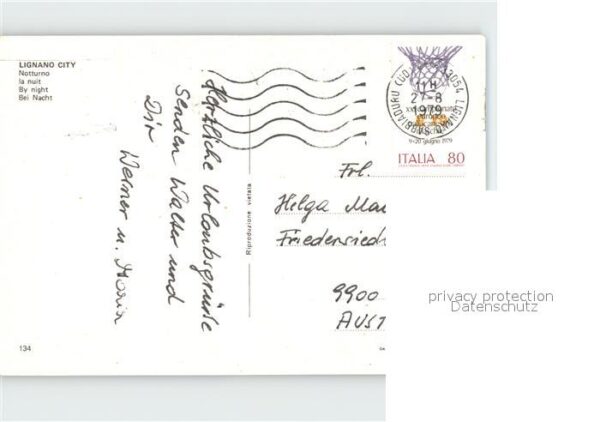 LIGNANO CITY
Notturno
la nuit
By night
Bei Nacht
Herzliche Urlaubsgrüße
senden Walter und
Dir
Werner u. Maria
Riproduzione vietata
11H
27-8
1979
33054 LIGNANO SABBIADORO (UD)
9-20 giugno 1979
ITALIA 80
Frl.
Helga
9900
134
privacy protection
Datenschutz